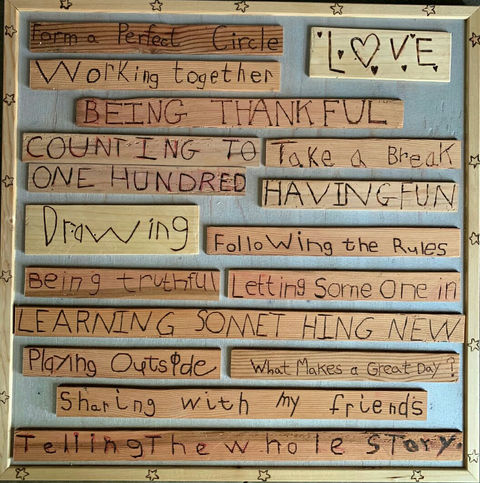 Form a Perfect Circle
LOVE
Working together
BEING THANKFUL
COUNTING TO
Take a Break
ONE HUNDRED
HAVING FUN
Drawing
Following the Rules
Being truthful
Letting Some One in
LEARNING SOMETHING NEW
Playing Outside
What Makes a Great Day?
Sharing with my friends
Telling The whole Story.